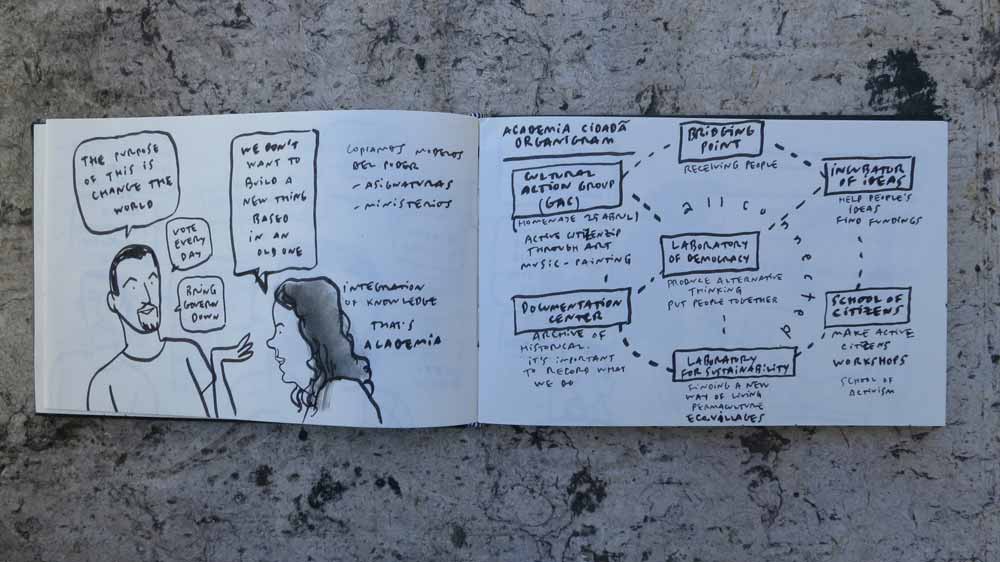 THE PURPOSE
OF THIS IS
CHANGE THE
WORLD
VOTE
EVERY
DAY
BRING
GOVERN
DOWN
WE DON'T
WANT TO
BUILD A
NEW THING
BASED
IN AN
OLD ONE
COPIAMOS MODELOS
DEL PODER
- ASIGNATURAS
- MINISTERIOS
INTEGRATION
OF KNOWLEDGE
THAT'S
ACADEMIA
ACADEMIA CIDADÃ
ORGANIGRAM
CULTURAL
ACTION GROUP
(GAC)
(HOMENAJE 25 ABRIL)
ACTIVE CITIZENZIP
THROUGH ART
MUSIC - PAINTING
DOCUMENTATION
CENTER
ARCHIVE OF
HISTORICAL.
IT'S IMPORTANT
TO RECORD WHAT
WE DO
BRIDGING
POINT
RECEIVING PEOPLE
all connected
LABORATORY
OF DEMOCRACY
PRODUCE ALTERNATIVE
THINKING
PUT PEOPLE TOGETHER
LABORATORY
FOR SUSTAINABILITY
FINDING A NEW
WAY OF LIVING
PERMACULTURE
ECOVILLAGES
INCUBATOR
OF IDEAS
HELP PEOPLE'S
IDEAS
FIND FUNDINGS
SCHOOL OF
CITIZENS
MAKE ACTIVE
CITIZENS
WORKSHOPS
SCHOOL OF
ACTIVISM